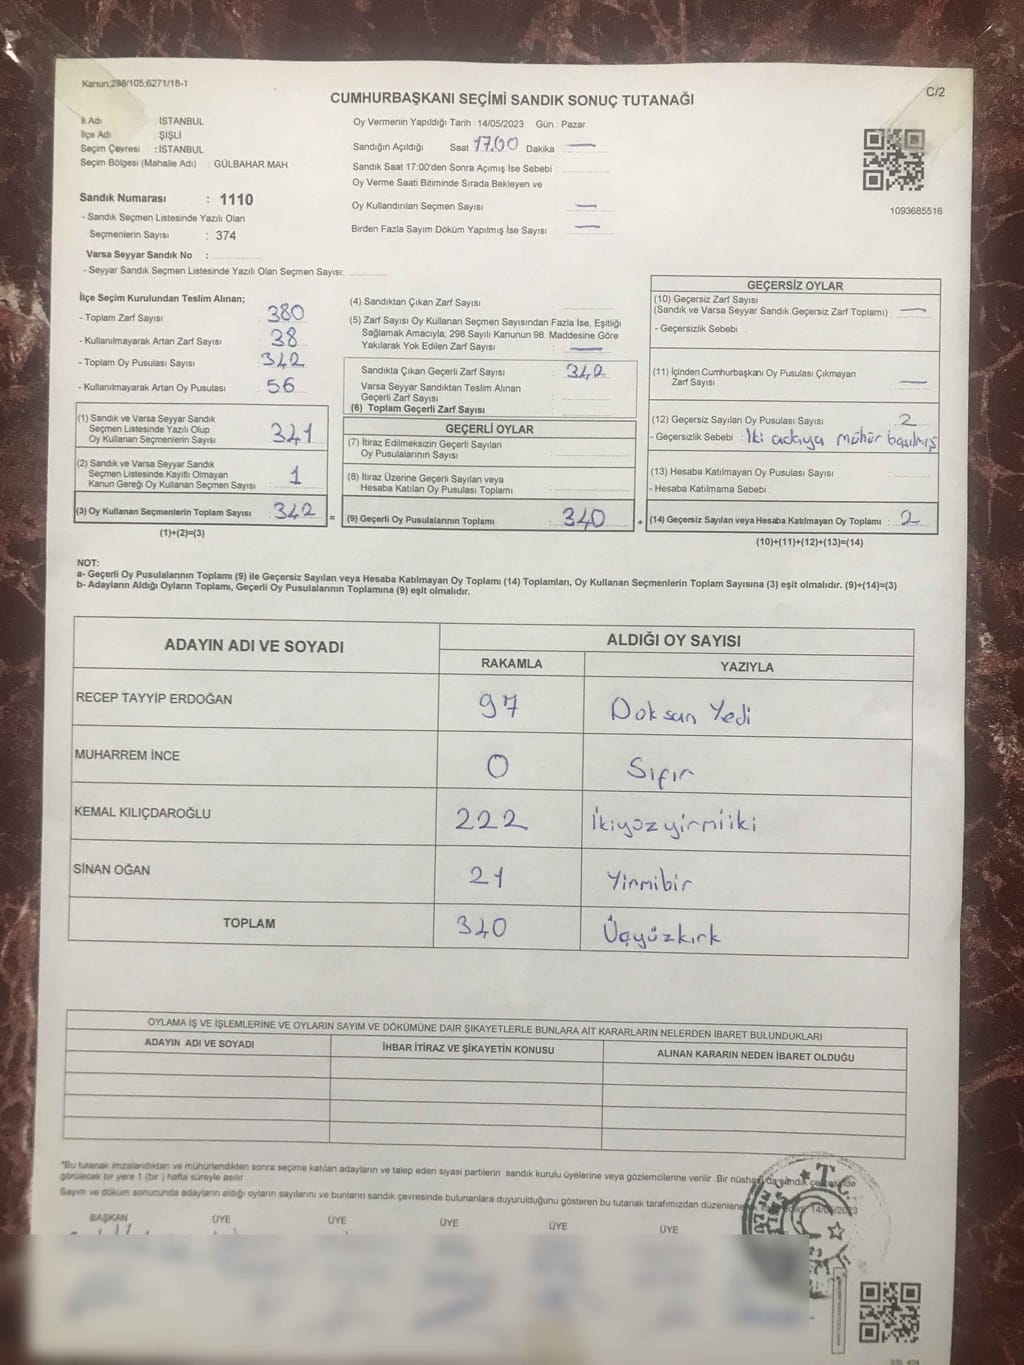 Kanun,298/105,6271/18-1
C/2
CUMHURBAŞKANI SEÇİMİ SANDIK SONUÇ TUTANAĞI
İl Adı : İSTANBUL
İlçe Adı : ŞİŞLİ
Seçim Çevresi : İSTANBUL
Seçim Bölgesi (Mahalle Adı) : GÜLBAHAR MAH
Sandık Numarası : 1110
- Sandık Seçmen Listesinde Yazılı Olan
Seçmenlerin Sayısı : 374
Varsa Seyyar Sandık No :
- Seyyar Sandık Seçmen Listesinde Yazılı Olan Seçmen Sayısı:
Oy Vermenin Yapıldığı Tarih : 14/05/2023 Gün : Pazar
Sandığın Açıldığı Saat 17.00 Dakika : —
Sandık Saat 17:00'den Sonra Açımış İse Sebebi :
Oy Verme Saati Bitiminde Sırada Bekleyen ve
Oy Kullandırılan Seçmen Sayısı : —
Birden Fazla Sayım Döküm Yapılmış İse Sayısı : —
1093685516
İlçe Seçim Kurulundan Teslim Alınan;
- Toplam Zarf Sayısı : 380
- Kullanılmayarak Artan Zarf Sayısı : 38
- Toplam Oy Pusulası Sayısı : 342
- Kullanılmayarak Artan Oy Pusulası : 56
(1) Sandık ve Varsa Seyyar Sandık
Seçmen Listesinde Yazılı Olup
Oy Kullanan Seçmenlerin Sayısı : 341
(2) Sandık ve Varsa Seyyar Sandık
Seçmen Listesinde Kayıtlı Olmayan
Kanun Gereği Oy Kullanan Seçmen Sayısı : 1
(3) Oy Kullanan Seçmenlerin Toplam Sayısı : 342 =
(1)+(2)=(3)
(4) Sandıktan Çıkan Zarf Sayısı :
(5) Zarf Sayısı Oy Kullanan Seçmen Sayısından Fazla İse, Eşitliği
Sağlamak Amacıyla; 298 Sayılı Kanunun 98. Maddesine Göre
Yakılarak Yok Edilen Zarf Sayısı : —
Sandıkta Çıkan Geçerli Zarf Sayısı : 342
Varsa Seyyar Sandıktan Teslim Alınan
Geçerli Zarf Sayısı :
(6) Toplam Geçerli Zarf Sayısı :
GEÇERLİ OYLAR
(7) İtiraz Edilmeksizin Geçerli Sayılan
Oy Pusulalarının Sayısı :
(8) İtiraz Üzerine Geçerli Sayılan veya
Hesaba Katılan Oy Pusulası Toplamı :
(9) Geçerli Oy Pusulalarının Toplamı : 340 +
GEÇERSİZ OYLAR
(10) Geçersiz Zarf Sayısı
(Sandık ve Varsa Seyyar Sandık Geçersiz Zarf Toplamı) : —
- Geçersizlik Sebebi :
(11) İçinden Cumhurbaşkanı Oy Pusulası Çıkmayan
Zarf Sayısı : —
(12) Geçersiz Sayılan Oy Pusulası Sayısı : 2
- Geçersizlik Sebebi : İki adaya mühür basılmış
(13) Hesaba Katılmayan Oy Pusulası Sayısı :
- Hesaba Katılmama Sebebi :
(14) Geçersiz Sayılan veya Hesaba Katılmayan Oy Toplamı : 2
(10)+(11)+(12)+(13)=(14)
NOT:
a- Geçerli Oy Pusulalarının Toplamı (9) ile Geçersiz Sayılan veya Hesaba Katılmayan Oy Toplamı (14) Toplamları, Oy Kullanan Seçmenlerin Toplam Sayısına (3) eşit olmalıdır. (9)+(14)=(3)
b- Adayların Aldığı Oyların Toplamı, Geçerli Oy Pusulalarının Toplamına (9) eşit olmalıdır.
ADAYIN ADI VE SOYADI ALDIĞI OY SAYISI
RAKAMLA YAZIYLA
RECEP TAYYİP ERDOĞAN 97 Doksan Yedi
MUHARREM İNCE 0 Sıfır
KEMAL KILIÇDAROĞLU 222 İkiyüzyirmiiki
SİNAN OĞAN 21 Yirmibir
TOPLAM 340 Üçyüzkırk
OYLAMA İŞ VE İŞLEMLERİNE VE OYLARIN SAYIM VE DÖKÜMÜNE DAİR ŞİKAYETLERLE BUNLARA AİT KARARLARIN NELERDEN İBARET BULUNDUKLARI
ADAYIN ADI VE SOYADI İHBAR İTİRAZ VE ŞİKAYETİN KONUSU ALINAN KARARIN NEDEN İBARET OLDUĞU
*Bu tutanak imzalandıktan ve mühürlendikten sonra seçime katılan adayların ve talep eden siyasi partilerin sandık kurulu üyelerine veya gözlemcilerine verilir. Bir nüshası da sandık çevresinde
görülecek bir yere 1 (bir ) hafta süreyle asılır.
Sayım ve döküm sonucunda adayların aldığı oyların sayılarını ve bunların sandık çevresinde bulunanlara duyurulduğunu gösteren bu tutanak tarafımızdan 14/05/2023
BAŞKAN ÜYE ÜYE ÜYE ÜYE ÜYE
T.C.